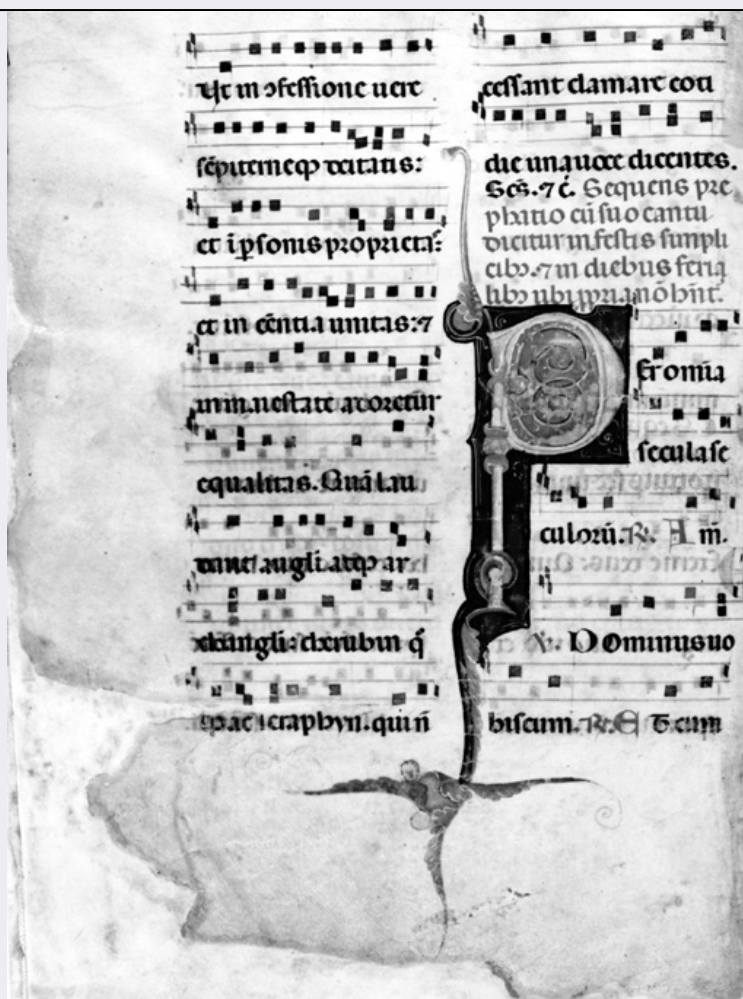 Ut in ɔfessione uere
sēpiterneqȝ deitatis:
et ī ꝑsonis proprietas:
et in ēentia unitas: ⁊
in maiestate adoretur
equalitas. Quā lau
dant angli atqȝ ar
changli: cherubin q̄
qȝ ac seraphyn. qui n̄
cessant clamare coti
die una uoce dicentes.
Sc̄s. ⁊ c̄. Sequens pre
phatio cū suo cantu
dicitur in festis simpli
cibȝ. ⁊ in diebus feria
libȝ ubi ppria nō hn̄t.
Per omnia
secula se
culorū. ℟. A m̄.
℣. Dominus uo
biscum. ℟. Et cum